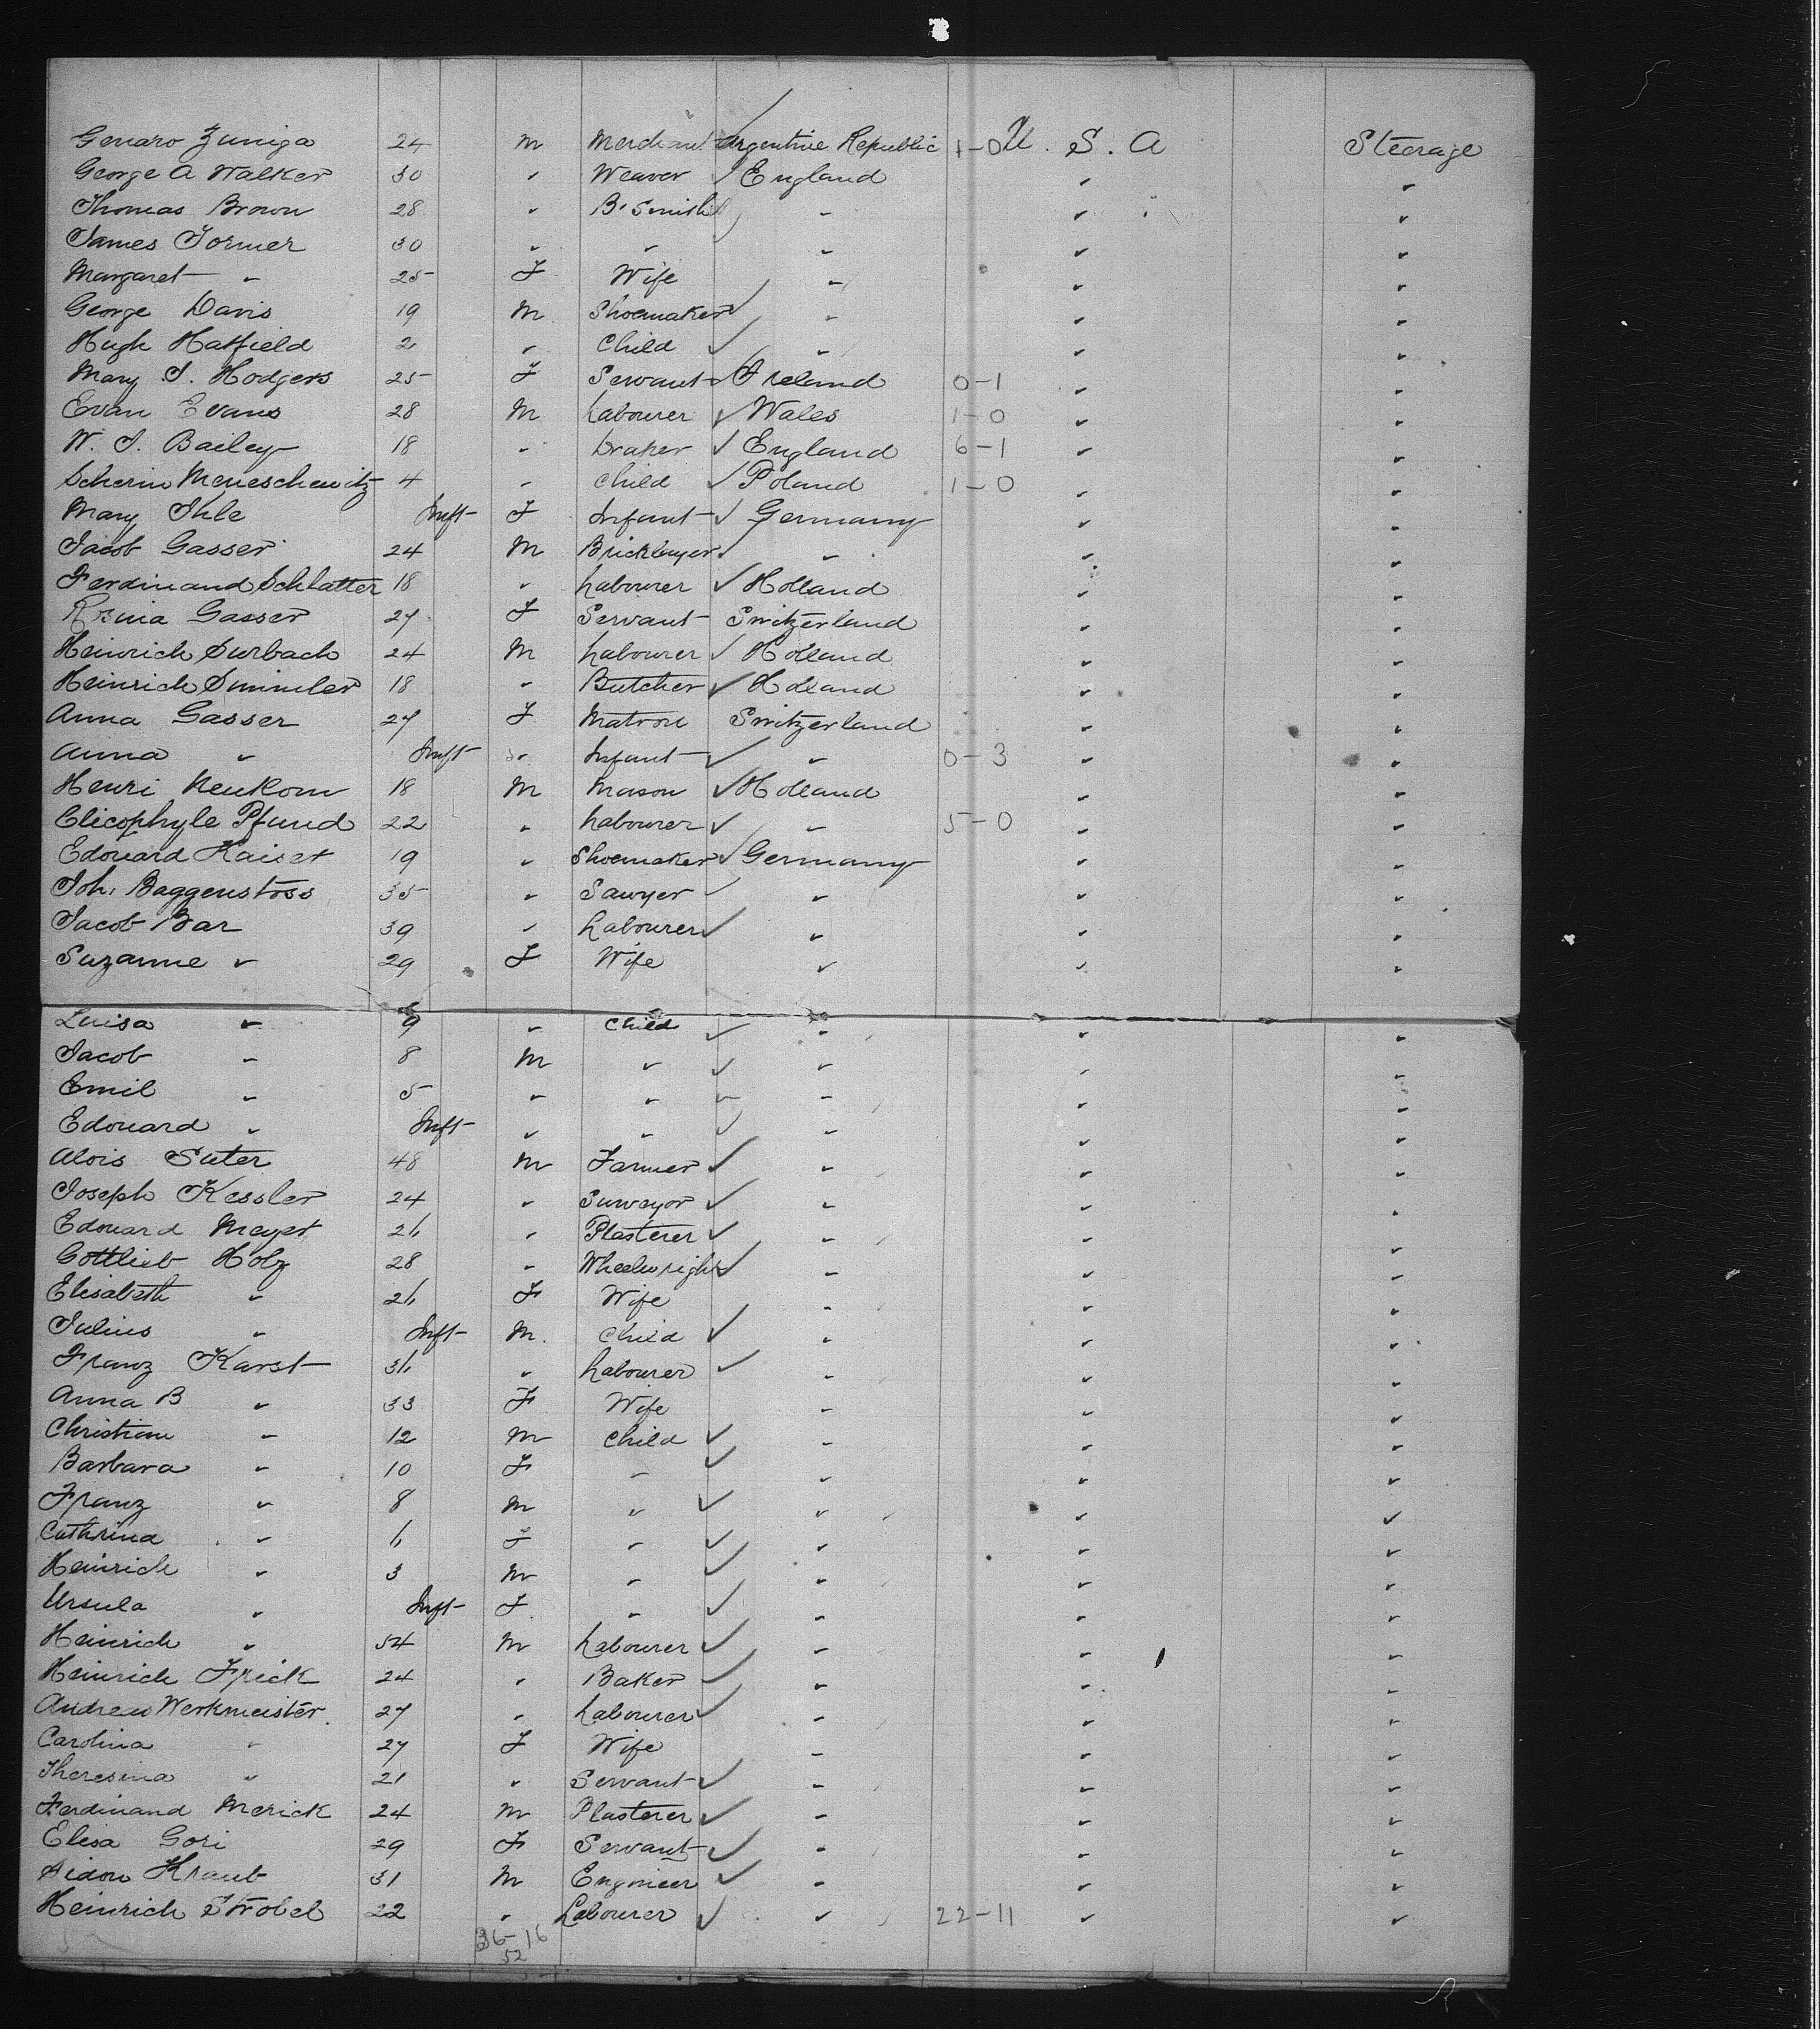 Genaro Zuniga 24 m Merchant Argentine Republic 1-0 U. S. A Steerage
George A Walker 30 " Weaver England " "
Thomas Brown 28 " B'Smith " " "
James Tormer 30 " " " " "
Margaret " 25 F Wife " " "
George Davis 19 M Shoemaker " " "
Hugh Hatfield 2 " Child " " "
Mary J. Hodgers 25 F Servant Ireland 0-1 " "
Evan Evans 28 M Labourer Wales 1-0 " "
W. J. Bailey 18 " Draker England 6-1 " "
Scherin Meneschewitz 4 " Child Poland 1-0 " "
Mary Ihle Inft F Infant Germany " "
Jacob Gasser 24 M Bricklayer " " "
Ferdinand Schlatter 18 " Labourer Holland " "
Rosina Gasser 27 F Servant Switzerland " "
Heinrich Surbach 24 M Labourer Holland " "
Heinrich Smimler 18 " Butcher Holland " "
Anna Gasser 27 F Matron Switzerland " "
Anna " Inft " Infant " 0-3 " "
Henri Neukom 18 M Mason Holland " "
Clicophyle Pfund 22 " Labourer " 5-0 " "
Edouard Kaiser 19 " Shoemaker Germany " "
Joh. Baggenstoss 35 " Sawyer " " "
Jacob Bar 39 " Labourer " " "
Suzanne " 29 F Wife " " "
Luisa " 9 " Child " " "
Jacob " 8 M " " " "
Emil " 5 " " " " "
Edouard " Inft " " " " "
Alois Suter 48 M Farmer " " "
Joseph Kessler 24 " Surveyor " " "
Edouard Mayer 26 " Plasterer " " "
Gottlieb Holz 28 " Wheelwright " " "
Elisabeth " 26 F Wife " " "
Julius " Inft M. Child " " "
Franz Karst 36 " Labourer " " "
Anna B " 33 F Wife " " "
Christian " 12 M Child " " "
Barbara " 10 F " " " "
Franz " 8 M " " " "
Cathrina " 6 F " " " "
Heinrich " 3 M " " " "
Ursula " Inft F " " " "
Heinrich " 54 M Labourer " " "
Heinrich Frick 24 " Baker " " "
Andreas Werkmeister 27 " Labourer " " "
Carolina " 27 F Wife " " "
Theresina " 21 " Servant " " "
Ferdinand Merick 24 M Plasterer " " "
Elisa Gori 29 F Servant " " "
Sidon Kraub 31 M Engineer " " "
Heinrich Strobel 22 " Labourer " 22-11 " "
36-16
52